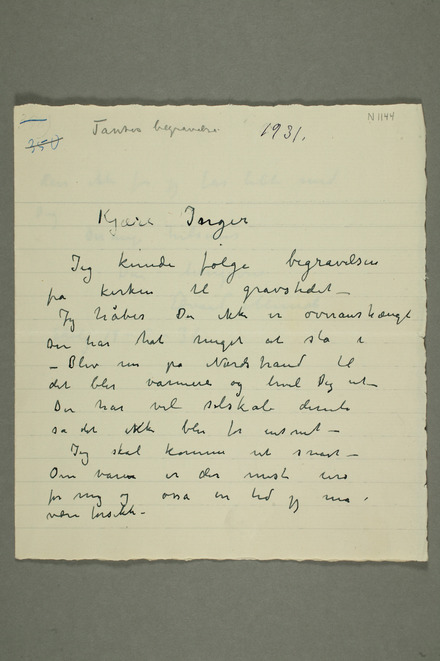 N 1144
350
Tantes begravelse
1931.
Kjære Inger
Jeg kunde følge begravelsen
fra kirken til gravstedet –
Jeg håber Du ikke er overanstrængt
Du har hat meget at stå i
– Bliv nu på Nordstrand til
det blir varmere og hvil Dig ut –
Du har vel selskab dernede
så det ikke blir for ensomt –
Jeg skal komme ut snart –
Om våren er der mest uro
for mig og også en tid jeg må
være forsikt –